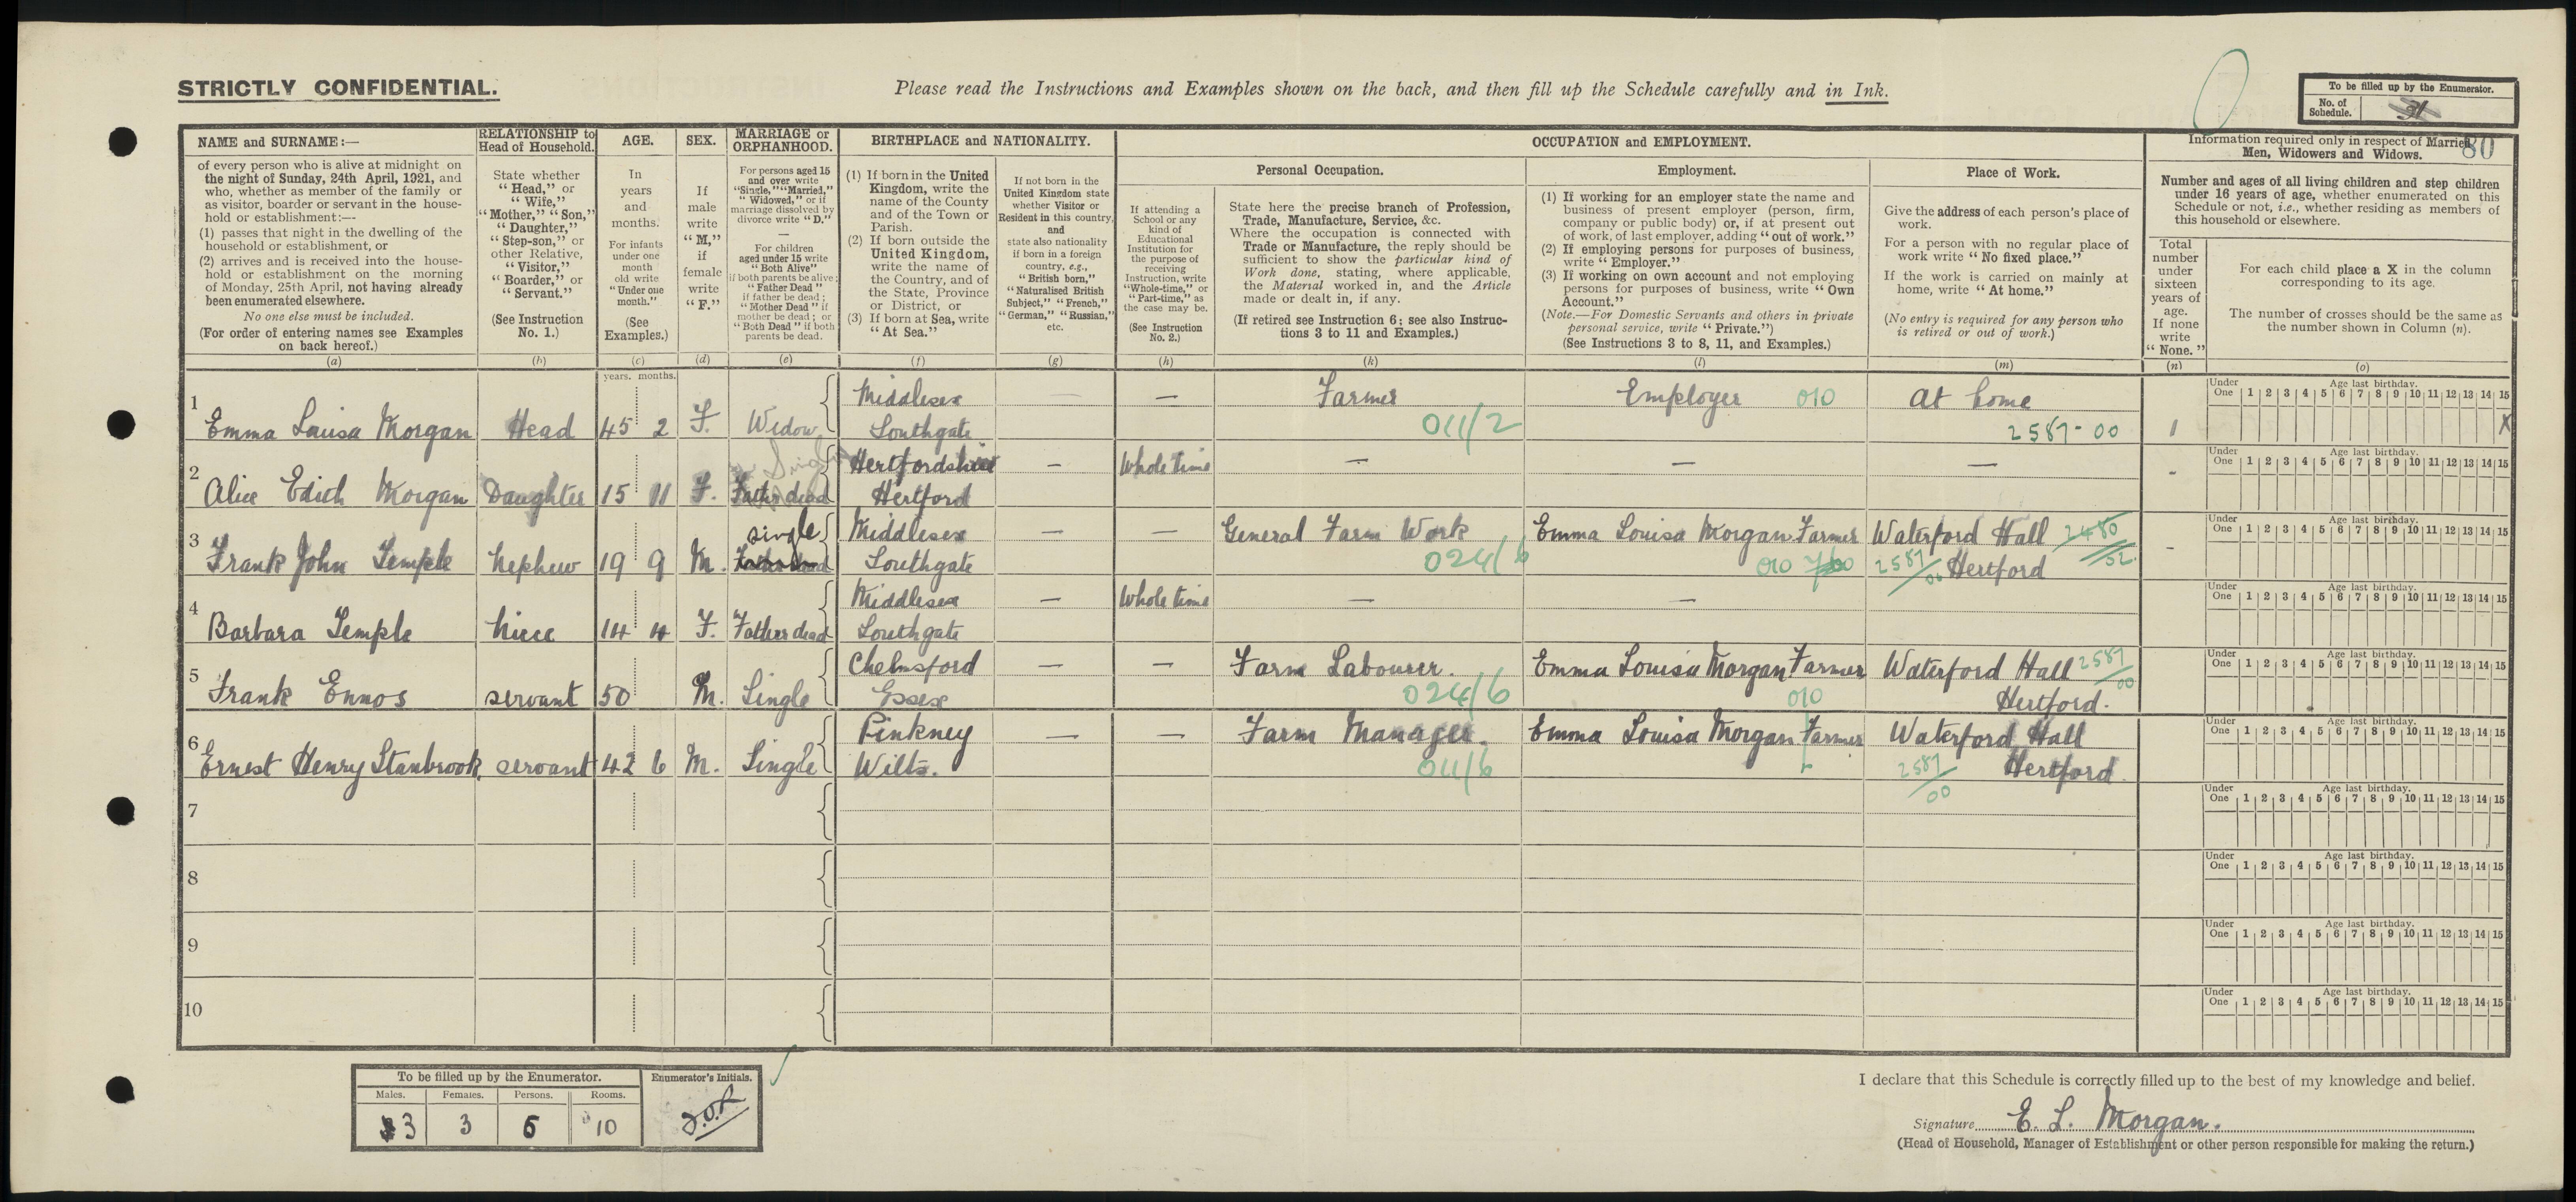 STRICTLY CONFIDENTIAL.
Please read the Instructions and Examples shown on the back, and then fill up the Schedule carefully and in Ink.
To be filled up by the Enumerator.
No. of Schedule.
80
NAME and SURNAME:—
of every person who is alive at midnight on
the night of Sunday, 24th April, 1921, and
who, whether as member of the family or
as visitor, boarder or servant in the house-
hold or establishment:—
(1) passes that night in the dwelling of the
household or establishment, or
(2) arrives and is received into the house-
hold or establishment on the morning
of Monday, 25th April, not having already
been enumerated elsewhere.
No one else must be included.
(For order of entering names see Examples
on back hereof.)
(a)
RELATIONSHIP to
Head of Household.
State whether
"Head," or
"Wife,"
"Mother," "Son,"
"Daughter,"
"Step-son," or
other Relative,
"Visitor,"
"Boarder," or
"Servant."
(See Instruction
No. 1.)
(b)
AGE.
In
years
and
months.
For infants
under one
month
old write
"Under one
month."
(See
Examples.)
(c)
SEX.
If
male
write
"M,"
if
female
write
"F."
(d)
MARRIAGE or
ORPHANHOOD.
For persons aged 15
and over write
"Single," "Married,"
"Widowed," or if
marriage dissolved by
divorce write "D."
For children
aged under 15 write
"Both Alive"
if both parents be alive;
"Father Dead"
if father be dead;
"Mother Dead" if
mother be dead; or
"Both Dead" if both
parents be dead.
(e)
BIRTHPLACE and NATIONALITY.
(1) If born in the United
Kingdom, write the
name of the County
and of the Town or
Parish.
(2) If born outside the
United Kingdom,
write the name of
the Country, and of
the State, Province
or District, or
(3) If born at Sea, write
"At Sea."
(f)
If not born in the
United Kingdom state
whether Visitor or
Resident in this country,
and
state also nationality
if born in a foreign
country, e.g.,
"British born,"
"Naturalised British
Subject," "French,"
"German," "Russian,"
etc.
(g)
OCCUPATION and EMPLOYMENT.
If attending a
School or any
kind of
Educational
Institution for
the purpose of
receiving
Instruction, write
"Whole-time," or
"Part-time," as
the case may be.
(See Instruction
No. 2.)
(h)
Personal Occupation.
State here the precise branch of Profession,
Trade, Manufacture, Service, &c.
Where the occupation is connected with
Trade or Manufacture, the reply should be
sufficient to show the particular kind of
Work done, stating, where applicable,
the Material worked in, and the Article
made or dealt in, if any.
(If retired see Instruction 6; see also Instruc-
tions 3 to 11 and Examples.)
(k)
Employment.
(1) If working for an employer state the name and
business of present employer (person, firm,
company or public body) or, if at present out
of work, of last employer, adding "out of work."
(2) If employing persons for purposes of business,
write "Employer."
(3) If working on own account and not employing
persons for purposes of business, write "Own
Account."
(Note.—For Domestic Servants and others in private
personal service, write "Private.")
(See Instructions 3 to 8, 11, and Examples.)
(l)
Place of Work.
Give the address of each person's place of
work.
For a person with no regular place of
work write "No fixed place."
If the work is carried on mainly at
home, write "At home."
(No entry is required for any person who
is retired or out of work.)
(m)
Information required only in respect of Married
Men, Widowers and Widows.
Number and ages of all living children and step children
under 16 years of age, whether enumerated on this
Schedule or not, i.e., whether residing as members of
this household or elsewhere.
Total
number
under
sixteen
years of
age.
If none
write
"None."
(n)
For each child place a X in the column
corresponding to its age.
The number of crosses should be the same as
the number shown in Column (n).
(o)
years. months.
1 Emma Louisa Morgan Head 45 2 F. Widow Middlesex Southgate — — Farmer 011/2 Employer 010 At home 2587-00 1 X
Under One Age last birthday. 1 2 3 4 5 6 7 8 9 10 11 12 13 14 15
2 Alice Edith Morgan Daughter 15 11 F. Single Father dead Hertfordshire Hertford — Whole time — — — -
Under One Age last birthday. 1 2 3 4 5 6 7 8 9 10 11 12 13 14 15
3 Frank John Temple Nephew 19 9 M. Single Father dead Middlesex Southgate — — General Farm Work 024/6 Emma Louisa Morgan Farmer 010 Waterford Hall Hertford 2480/52 2587/00 -
Under One Age last birthday. 1 2 3 4 5 6 7 8 9 10 11 12 13 14 15
4 Barbara Temple Niece 14 4 F. Father dead Middlesex Southgate — Whole time — —
Under One Age last birthday. 1 2 3 4 5 6 7 8 9 10 11 12 13 14 15
5 Frank Ennos servant 50 M. Single Chelmsford Essex — — Farm Labourer. 024/6 Emma Louisa Morgan Farmer 010 Waterford Hall Hertford. 2587/00
Under One Age last birthday. 1 2 3 4 5 6 7 8 9 10 11 12 13 14 15
6 Ernest Henry Stanbrook, servant 42 6 M. Single Pinkney Wilts. — — Farm Manager. 011/6 Emma Louisa Morgan Farmer Waterford Hall Hertford 2587/00
Under One Age last birthday. 1 2 3 4 5 6 7 8 9 10 11 12 13 14 15
7
Under One Age last birthday. 1 2 3 4 5 6 7 8 9 10 11 12 13 14 15
8
Under One Age last birthday. 1 2 3 4 5 6 7 8 9 10 11 12 13 14 15
9
Under One Age last birthday. 1 2 3 4 5 6 7 8 9 10 11 12 13 14 15
10
Under One Age last birthday. 1 2 3 4 5 6 7 8 9 10 11 12 13 14 15
To be filled up by the Enumerator.
Males. Females. Persons. Rooms.
3 3 6 10
Enumerator's Initials.
I declare that this Schedule is correctly filled up to the best of my knowledge and belief.
Signature E. L. Morgan.
(Head of Household, Manager of Establishment or other person responsible for making the return.)